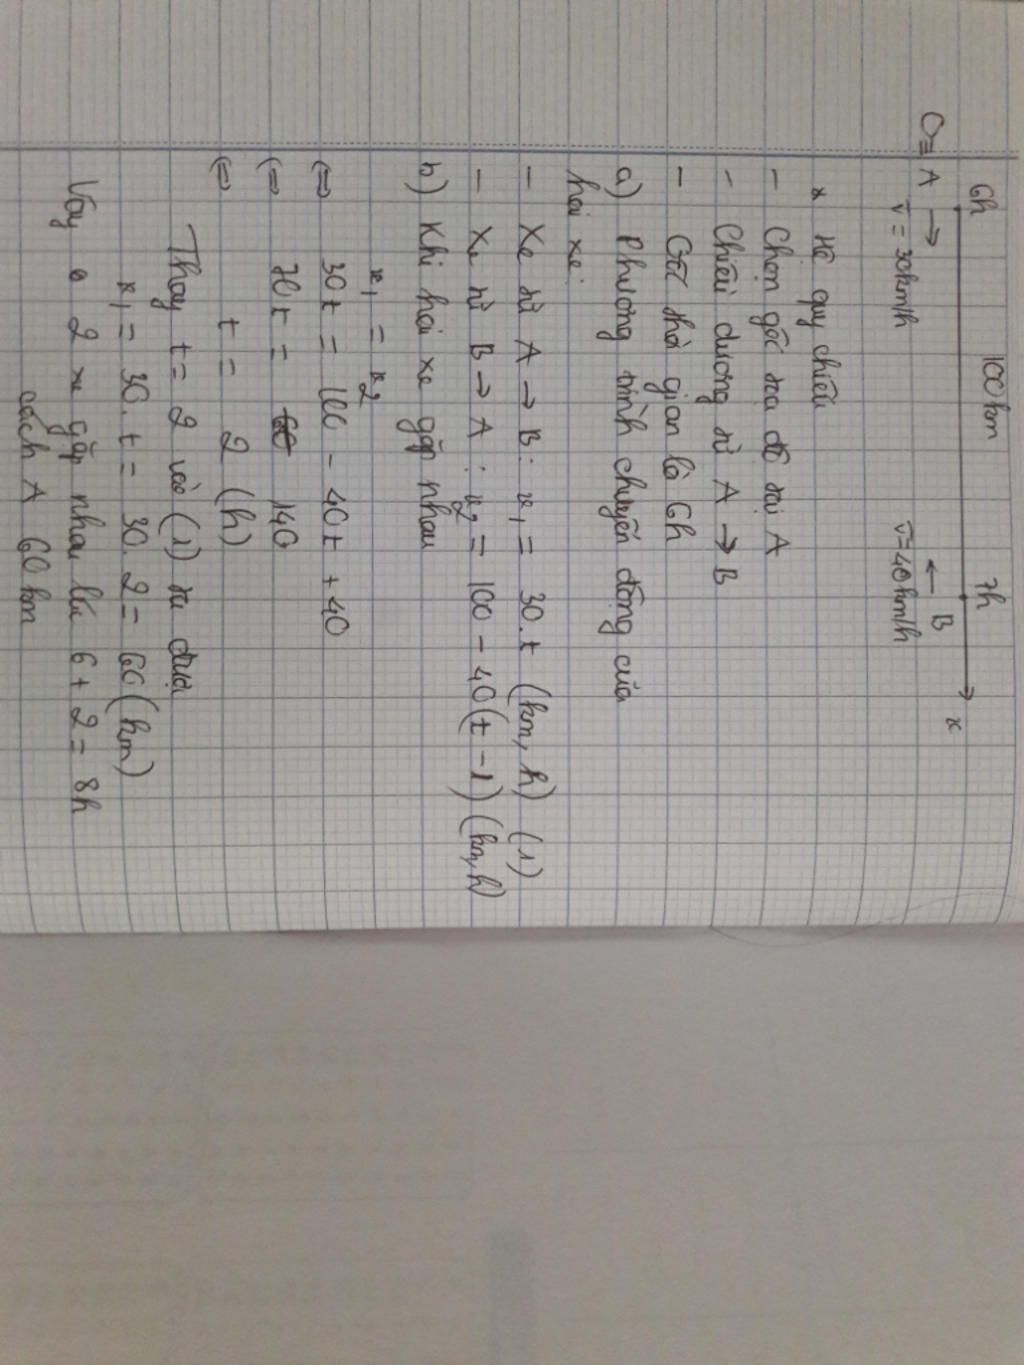 6h 100km 7h
O≡A → ← B x
v = 30km/h v = 40km/h
* Hệ quy chiếu
- Chọn gốc toạ độ tại A
- Chiều dương từ A → B
- Gốc thời gian là 6h
a) Phương trình chuyển động của
hai xe:
- Xe từ A → B: x₁ = 30.t (km, h) (1)
- Xe từ B → A: x₂ = 100 - 40(t - 1) (km, h)
b) Khi hai xe gặp nhau
x₁ = x₂
(=) 30t = 100 - 40t + 40
(=) 70t = 140
(=) t = 2 (h)
Thay t = 2 vào (1) ta được
x₁ = 30.t = 30.2 = 60 (km)
Vậy 2 xe gặp nhau lúc 6 + 2 = 8h
cách A 60km